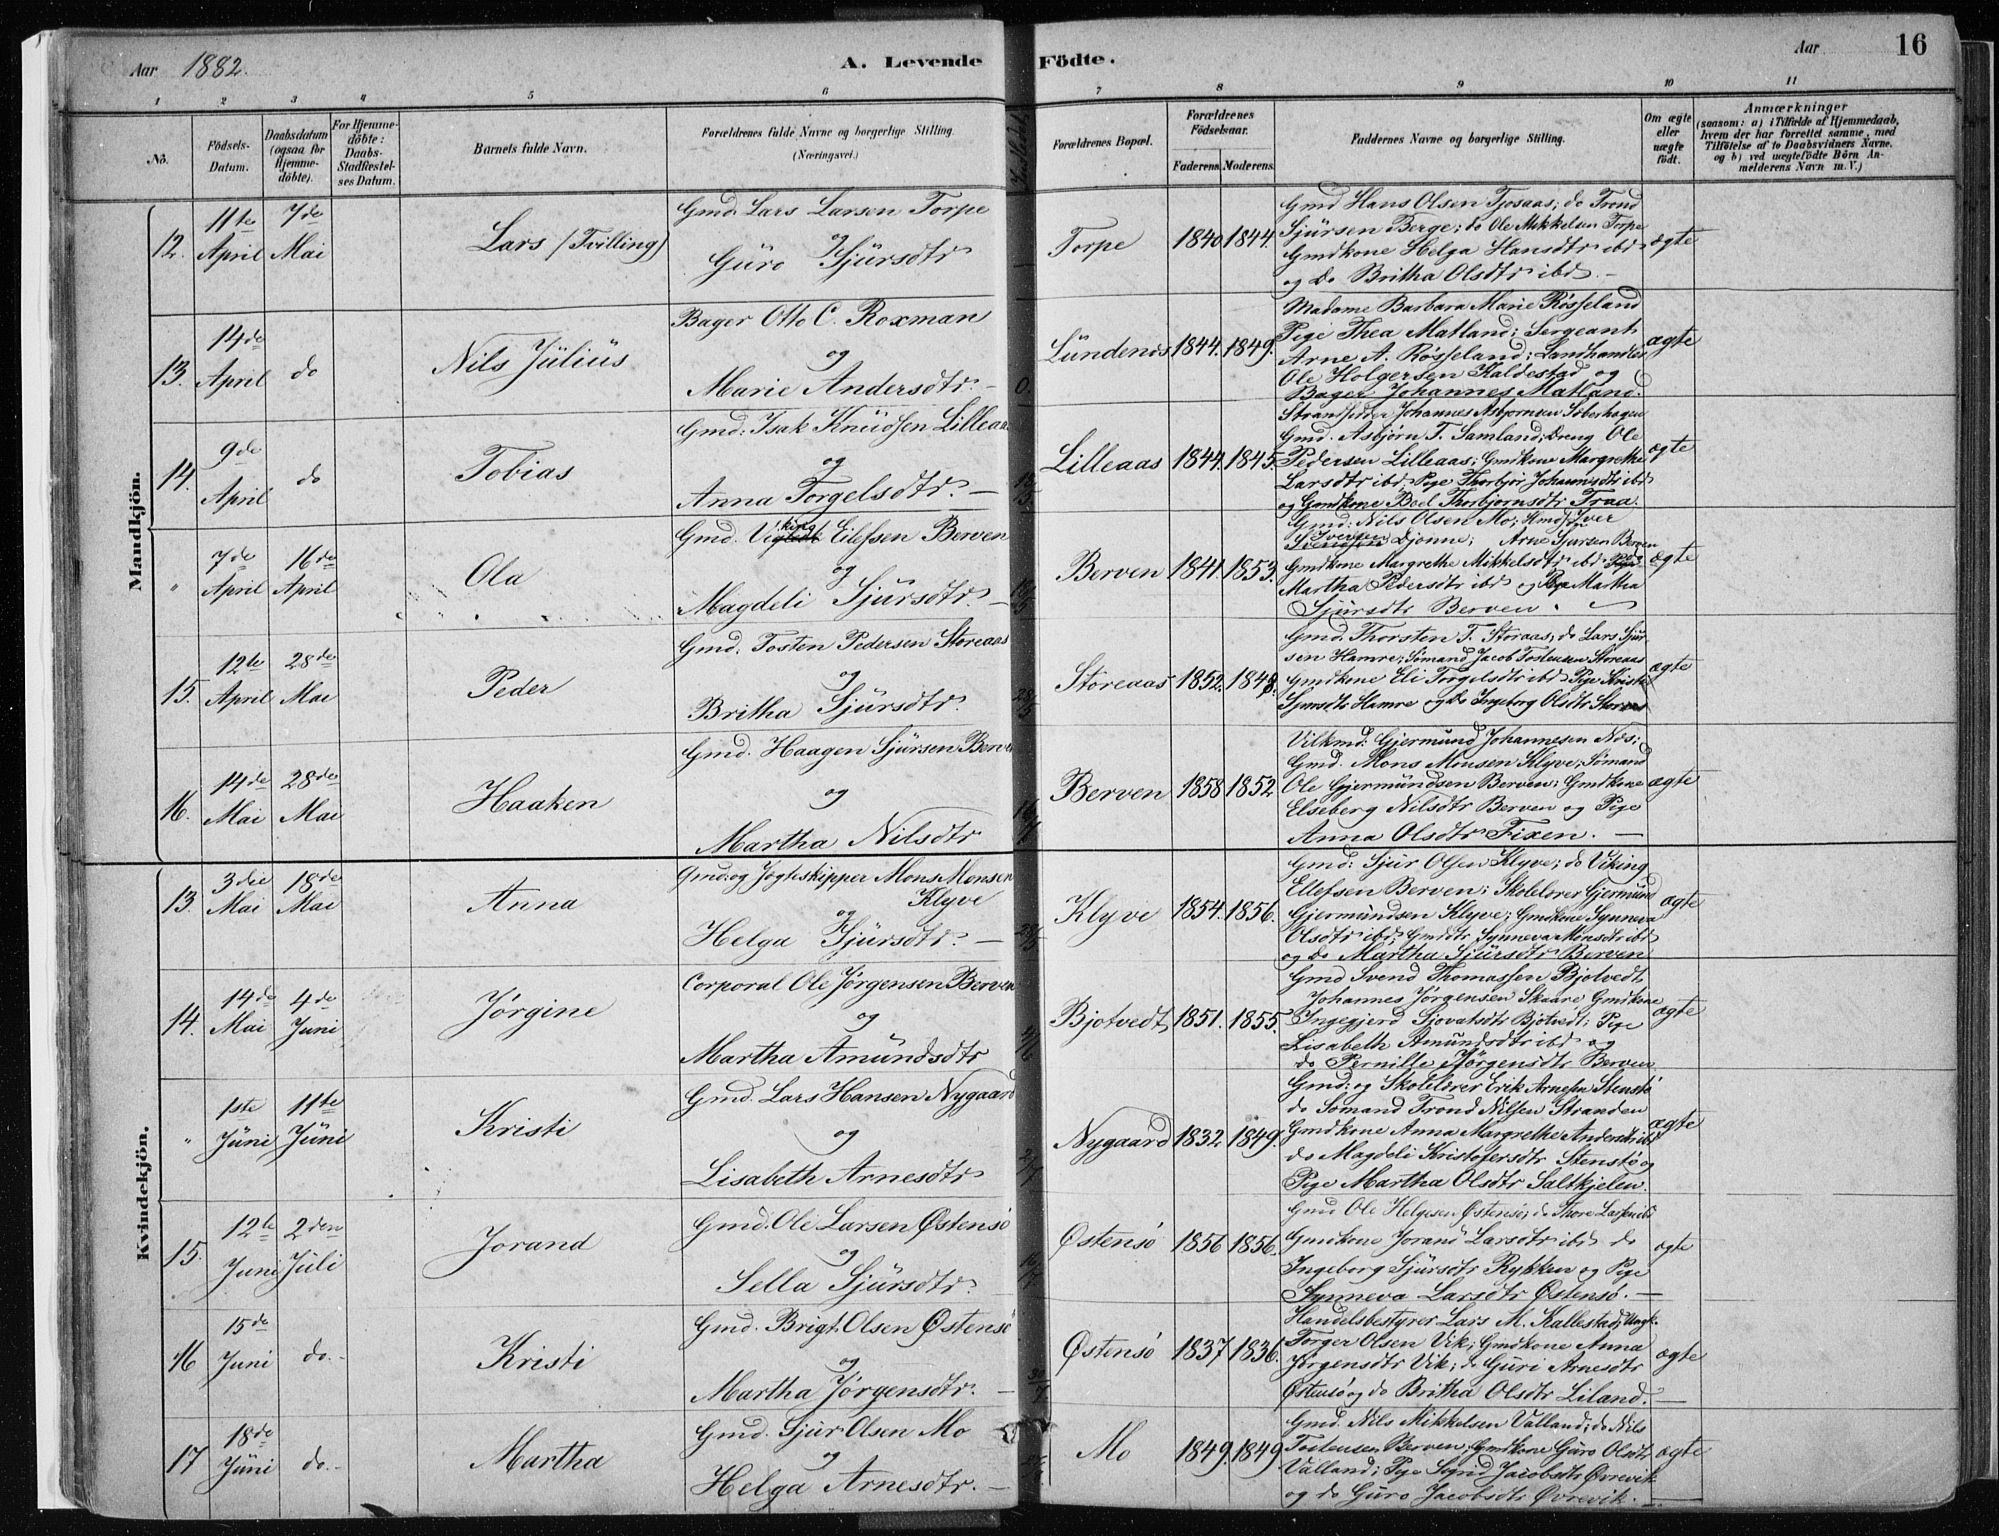 Aar 1882.
A. Levende Födte.
Aar
16
1 2 3 4 5 6 7 8 9 10 11
No.
Födsels-Datum.
Daabsdatum (ogsaa for Hjemme-döbte).
For Hjemme-döbte: Daabs-Stadfæstel-ses Datum.
Barnets fulde Navn.
Forældrenes fulde Navne og borgerlige Stilling.
(Næringsvei.)
Forældrenes Bopæl.
Forældrenes Födselsaar.
Faderens. Moderens.
Faddernes Navne og borgerlige Stilling.
Om ægte eller uægte födt.
Anmærkninger
(saasom: a) i Tilfælde af Hjemmedaab, hvem der har forrettet samme, med Tilföielse af to Daabsvidners Navne. og b) ved uægtefödte Börn An-melderens Navn m.V.)
Mandkjön.
12. 11te April 7de Mai
Lars (Tvilling)
Gmd. Lars Larsen Torpe
og
Güro Sjürsdtr
Torpe 1840 1844.
Gmd Hans Olsen Tjosaas; do Trond
Sjürsen Berge; do Ole Mikkelsen Torpe
Gmdkone Helga Hansdtr ibd
og do Britha Olsdtr ibd. –
ægte
13. 14de April do
Nils Jülius
Bager Otto C. Roxman
og
Marie Andersdtr. –
0.
Lündenæs 1844. 1849.
Madame Barbara Marie Røsseland
Pige Thea Matland; Sergeant
Arne A. Røsseland; Landhandler
Ole Holgersen Kaldestad og
Bager Johannes Matland.
ægte
14. 9de April do
Tobias
Gmd: Isak Knüdsen Lilleaas
og
Anna Torgelsdtr. –
Lilleaas 1844. 1845.
Strandsidder Johannes Asbjornsen
Gmd. Asbjørn T. Samland; Dreng Ole
Pedersen Lilleaas; Gmdkone Margrethe
Larsdtr ibd; Pige Thorbjør Johannisdtr ibd
og Gmdkone Boel Thorbjornsdtr Traa.
ægte
" 7de April 16de April
Ola
Gmd. Viking Eilefsen Berven
og
Magdeli Sjürsdtr. –
Berven 1841. 1853.
Gmd: Nils Olsen Mo; Hmd Iver
Iversen Djonne; Arne Sjursen Berven
Gmdkone Margrethe Mikkelsdtr ibd;
Martha Pedersdtr ibd og Pige Martha
Sjürsdtr Berven.
ægte
15. 12te April 28de Mai
Peder
Gmd. Tosten Pedersen Storeaas
og
Britha Sjürsdtr.
28/5
Storeaas 1852. 1848.
Gmd. Thorsten T. Storaas; do Lars Sjür-
sen Hamre; Sömand Jacob Tostensen Storeaas
Gmdkone Eli Torgelsdtr ibd Pige Kristi
Sjursdtr Hamre og do Ingeborg Olsdtr Storeaas
ægte
16. 14de Mai 28de Mai
Haaken
Gmd. Haagen Sjürsen Berven
og
Martha Nilsdtr
Berven 1858 1852
Vilkmd: Gjermund Johannesen Næs;
Gmd. Mons Monsen Klyve; Sömand
Ole Gjermündsen Berven; Gmdkone
Elseberg Nilsdtr Berven og Pige
Anna Olsdtr Fixen. –
ægte
Kvindekjön.
13. 3die Mai 18de Mai
Anna
Gmd: og Jægteskipper Mons Monsen
og Klyve
Helga Sjürsdtr. –
Klyve 1854. 1856.
Gmd: Sjur Olsen Klyve; do Viking
Ellefsen Berven; Skolelærer Gjermund
Gjermündsen Klyve; Gmdkone Synneva
Olsdtr ibd; Gmddtr Synneva Monsdtr ibd
og do Martha Sjürsdtr Berven
ægte
14. 14de Mai 4de Juni
Jørgine
Corporal Ole Jørgensen Berven
og
Martha Amündsdtr
4/6
Bjotvedt 1851. 1855.
Gmd Svend Thomassen Bjotvedt
Johannes Jørgensen Skaare Gmdkone
Ingegjerd Sjovatsdtr Bjotvedt; Pige
Lisabeth Amündsdtr ibd og
do Pernille Jörgensdtr Berven
ægte
" 1ste Jüni 11te Jüni
Kristi
Gmd. Lars Hansen Nygaard
og
Lisabeth Arnesdtr
2/7
Nygaard 1832. 1849.
Gmd: og Skolelærer Erik Arnesen Stenstö
do Sömand Trond Nilsen Stranden
Gmdkone Anna Margrethe Andersdtr ibd
do Magdeli Kristofersdtr Stenstö og
Pige Martha Olsdtr Saltkjelen.
ægte
15. 12te Juni 2den Juli
Jorand
Gmd. Ole Larsen Østensö
og
Sella Sjürsdtr.
Østensö 1856 1856.
Gmd Ole Helgesen Østensö; do Thore Larsen ibd
Gmdkone Jorand Larsdtr ibd do
Ingeborg Sjürsdtr Rykken og Pige
Synneva Larsdtr Østensö. –
ægte
16 15de Juni do. –
Kristi
Gmd. Brigt Olsen Østensö
og
Martha Jørgensdtr. –
30/7
Østensö 1837 1836.
Handelsbestyrer Lars M. Kallestad; Ungk.
Torger Olsen Vik; Gmdkone Anna
Jørgensdtr Vik; do Guri Arnesdtr
Østensö og do Britha Olsdtr Liland. –
ægte
17 18de Jüni do. –
Martha
Gmd. Sjur Olsen Mo
og
Helga Arnesdtr. –
Mo 1849. 1849
Gmd. Nils Mikkelsen Valland; do Nils
Tostensen Berven; Gmdkone Güro Olsdtr
Valland; Pige Sigrid Jacobsdtr Øvrevik
og do Guro Jacobsdtr Øvrevik. –
ægte